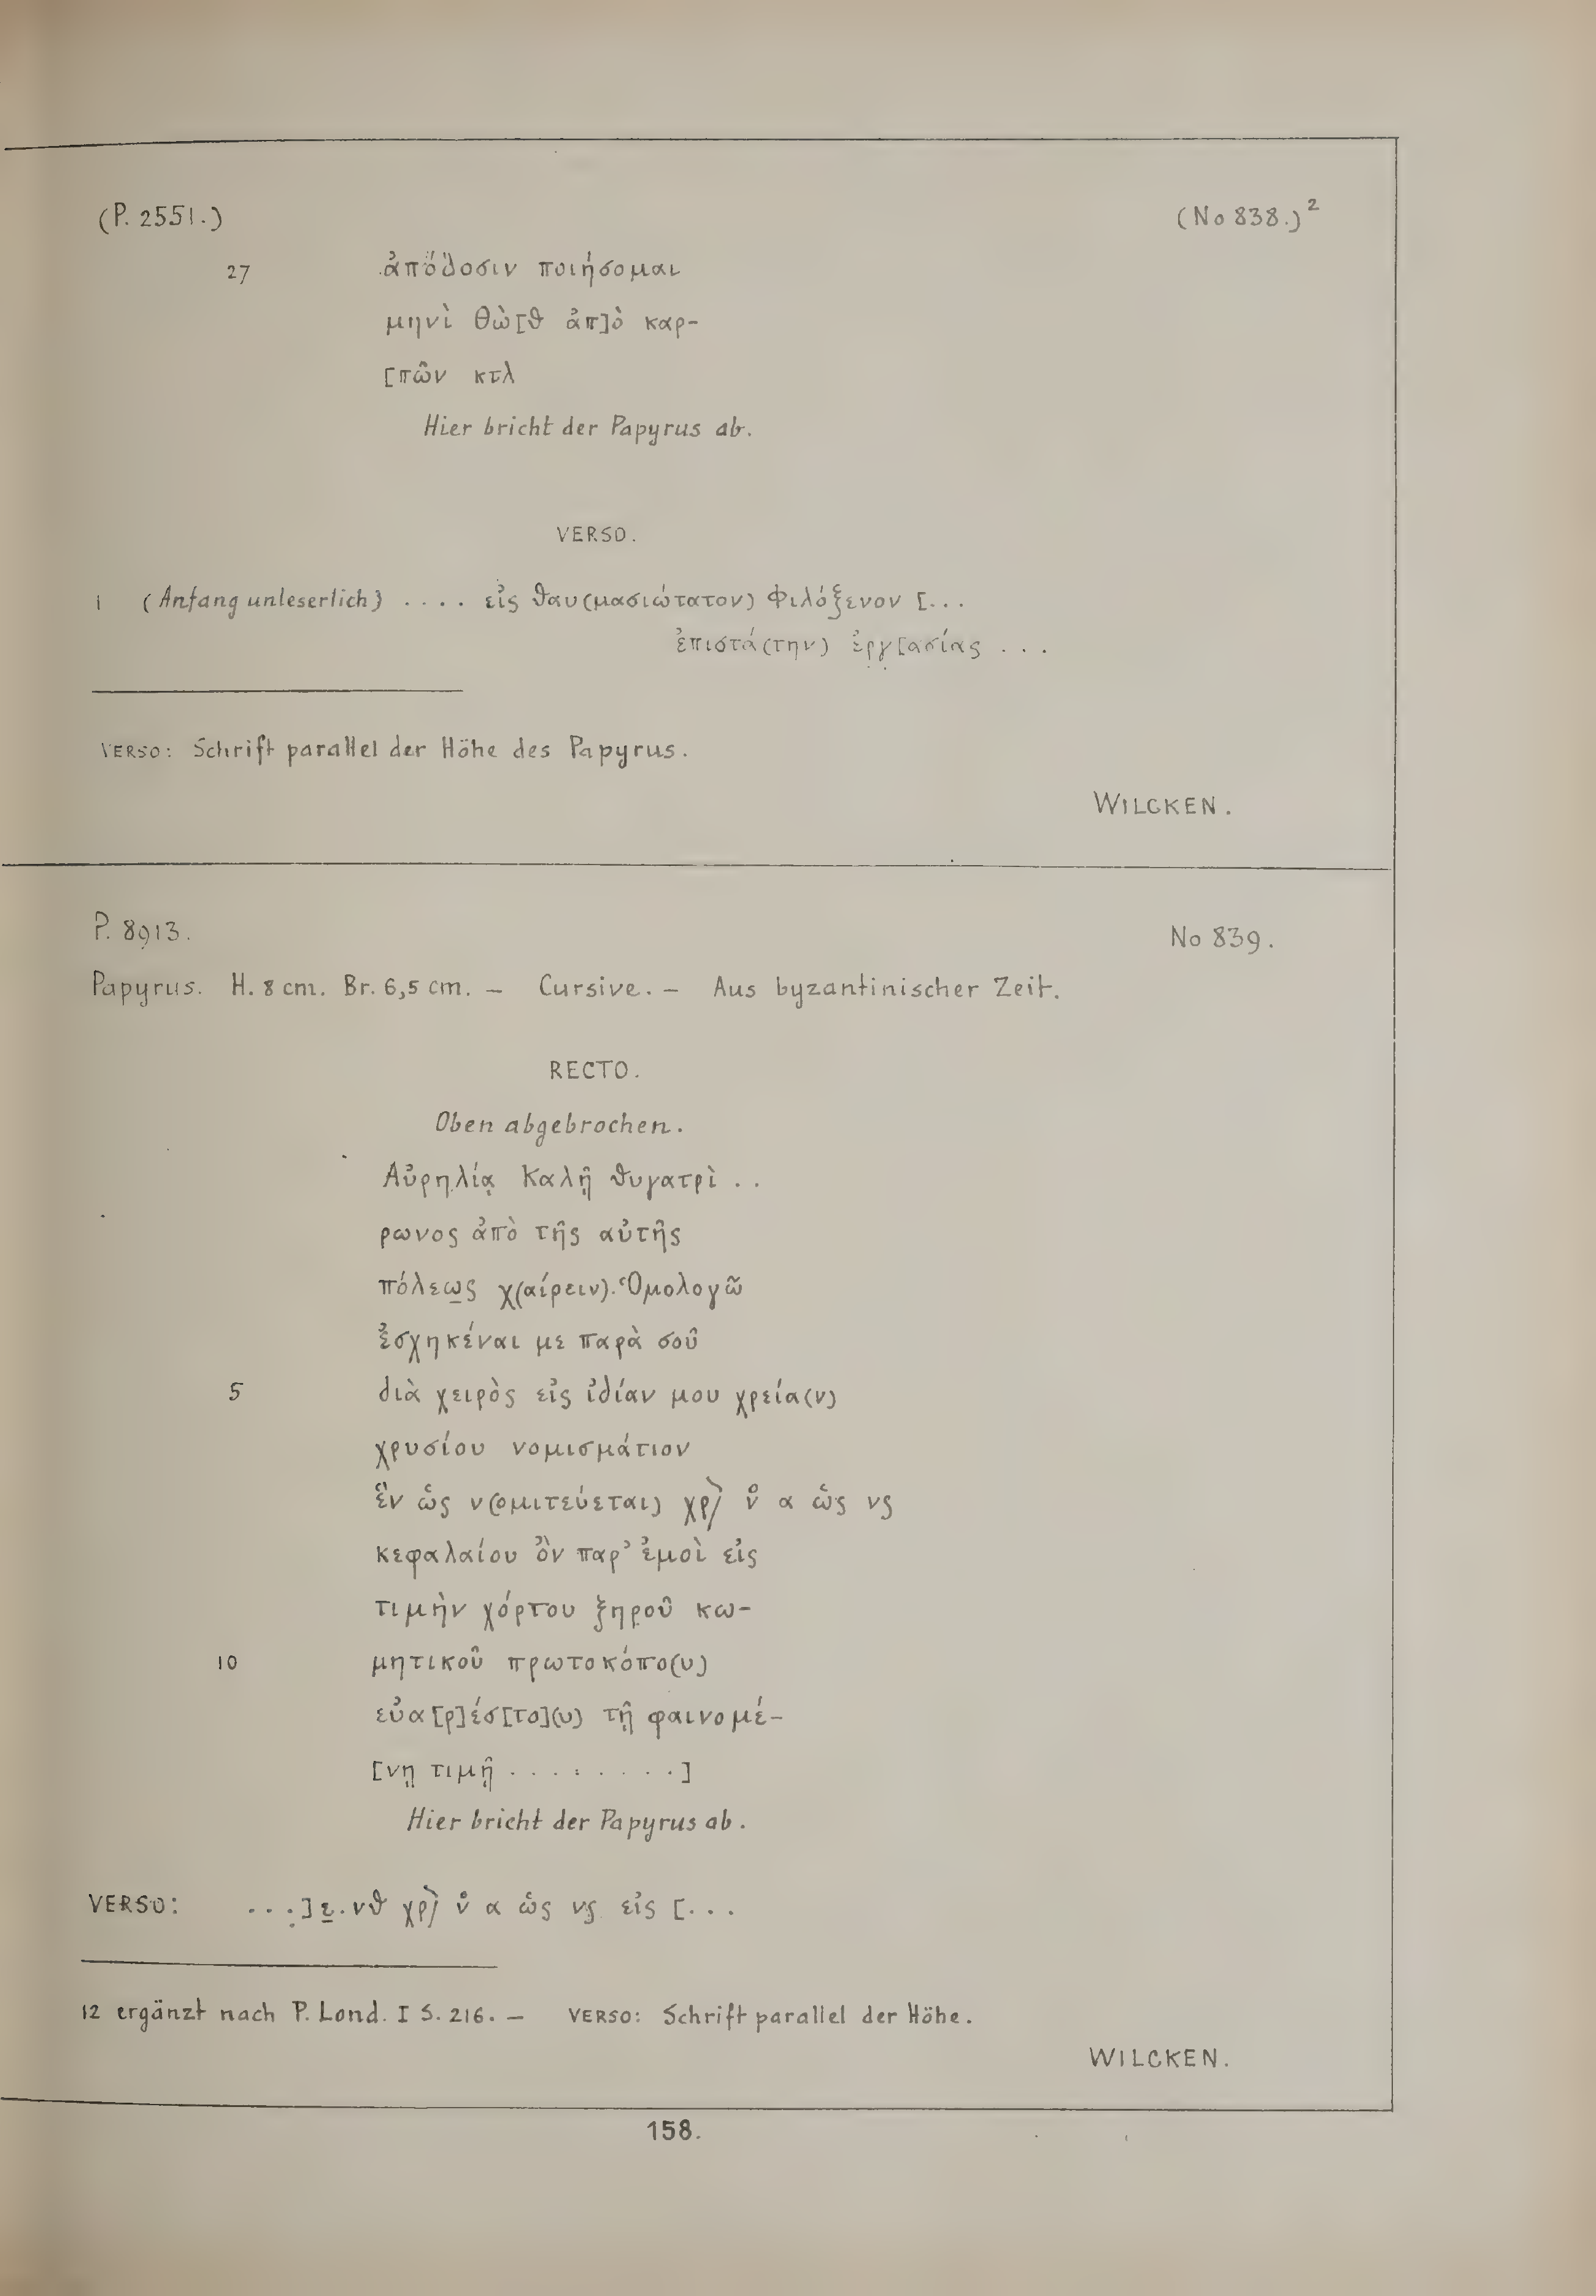 (P. 2551.) (No 838.)²
27 ἀπόδοσιν ποιήσομαι
μηνὶ Θὼ[θ ἀπ]ὸ καρ-
[πῶν κτλ
Hier bricht der Papyrus ab.
VERSO.
1 (Anfang unleserlich) .... εἰς θαυ(μασιώτατον) Φιλόξενον [...
ἐπιστά(την) ἐργ[ασίας ...
VERSO: Schrift parallel der Höhe des Papyrus.
WILCKEN.
P. 8913. No 839.
Papyrus. H. 8 cm. Br. 6,5 cm. – Cursive. – Aus byzantinischer Zeit.
RECTO.
Oben abgebrochen.
Αὐρηλίᾳ Καλῇ θυγατρὶ . .
ρωνος ἀπὸ τῆς αὐτῆς
πόλεως χ(αίρειν). Ὁμολογῶ
ἐσχηκέναι με παρὰ σοῦ
5 διὰ χειρὸς εἰς ἰδίαν μου χρεία(ν)
χρυσίου νομισμάτιον
ἓν ὡς ν(ομιτεύεται) χρ) ν̊ α ὡς νς
κεφαλαίου ὂν παρ' ἐμοὶ εἰς
τιμὴν χόρτου ξηροῦ κω-
10 μητικοῦ πρωτοκόπο(υ)
εὐα[ρ]έσ[το](υ) τῇ φαινομέ-
[νῃ τιμῇ . . . . . . . . .]
Hier bricht der Papyrus ab.
VERSO: ....]ε.νθ χρ) ν̊ α ὡς νς εἰς [...
12 ergänzt nach P. Lond. I S. 216. – VERSO: Schrift parallel der Höhe.
WILCKEN.
158.